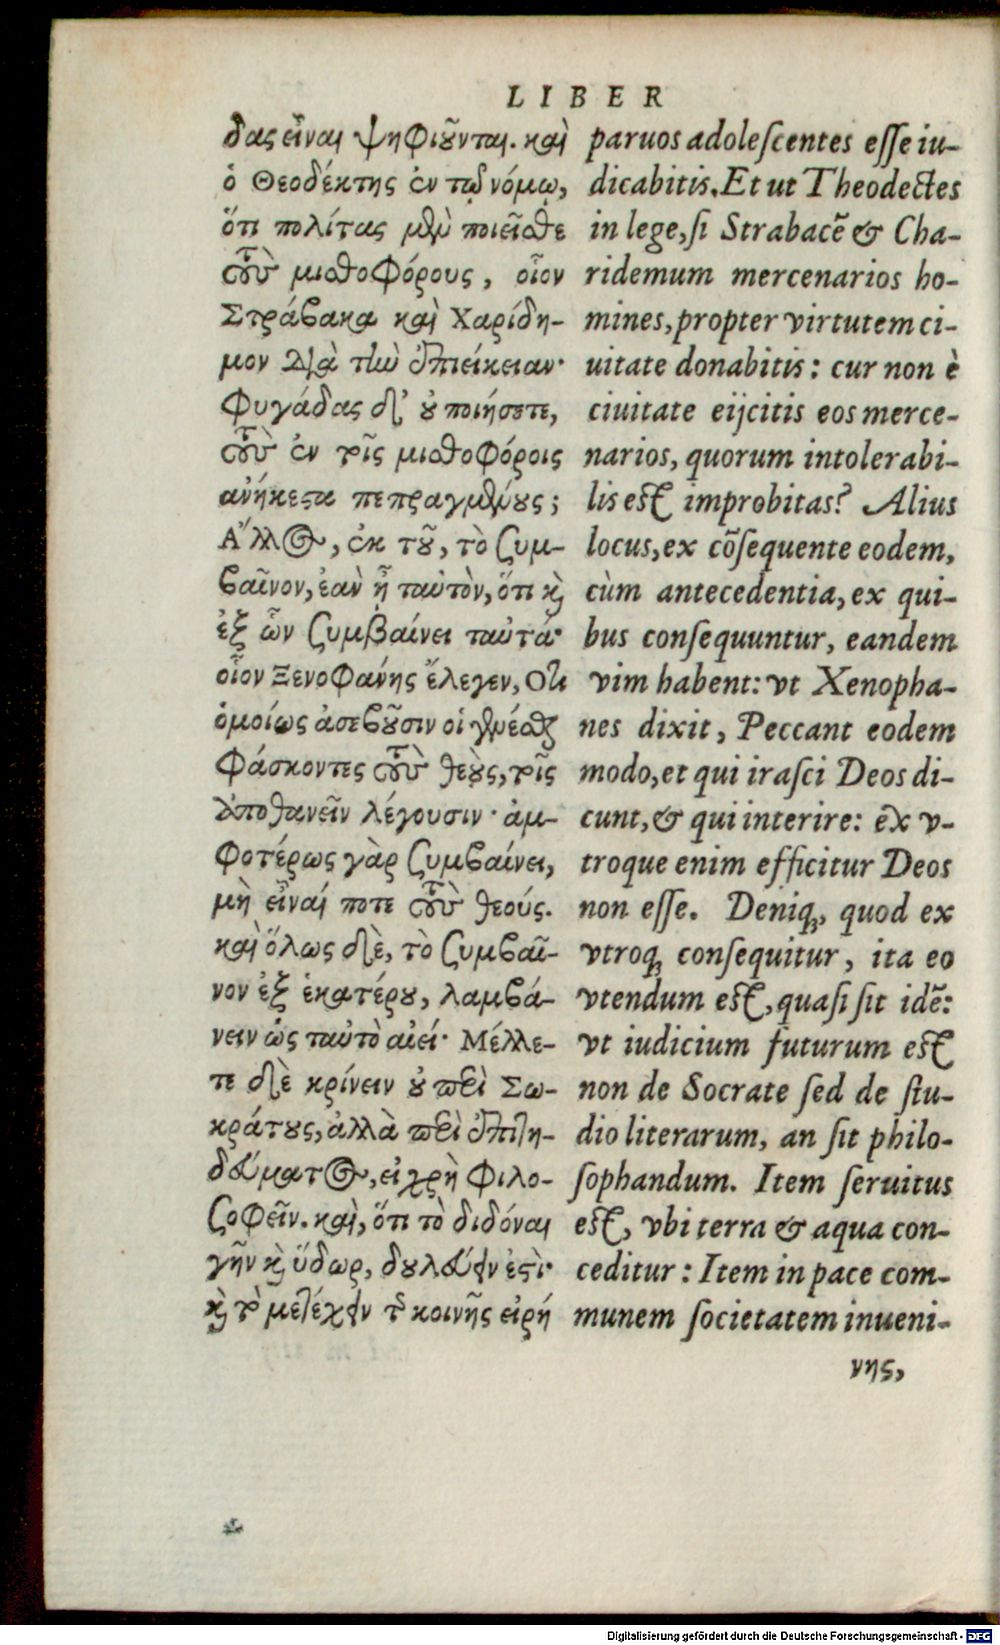 LIBER
δας εἶναι ψηφιοῦνται. καὶ
ὁ Θεοδέκτης ἐν τῷ νόμῳ,
ὅτι πολίτας μὲν ποιεῖσθε
τοὺς μισθοφόρους, οἷον
Στράβακα καὶ Χαρίδη-
μον διὰ τὴν ἐπιείκειαν·
φυγάδας δ' οὐ ποιήσετε,
τοὺς ἐν τοῖς μισθοφόροις
ἀνήκεστα πεπραγμένους;
Ἄλλος, ἐκ τοῦ, τὸ ζυμ-
βαῖνον, ἐὰν ᾖ ταὐτὸν, ὅτι καὶ
ἐξ ὧν ζυμβαίνει ταὐτά·
οἷον Ξενοφάνης ἔλεγεν, Ὅτι
ὁμοίως ἀσεβοῦσιν οἱ γενέσθαι
φάσκοντες τοὺς θεοὺς, τοῖς
ἀποθανεῖν λέγουσιν· ἀμ-
φοτέρως γὰρ ζυμβαίνει,
μὴ εἶναί ποτε τοὺς θεούς.
καὶ ὅλως δὲ, τὸ ζυμβαῖ-
νον ἐξ ἑκατέρου, λαμβά-
νειν ὡς ταὐτὸ αἰεί· Μέλλε-
τε δὲ κρίνειν οὐ περὶ Σω-
κράτους, ἀλλὰ περὶ ἐπιτη-
δεύματος, εἰ χρὴ φιλο-
ζοφεῖν. καὶ, ὅτι τὸ διδόναι
γῆν καὶ ὕδωρ, δουλεύειν ἐστὶ·
καὶ τὸ μετέχειν τῆς κοινῆς εἰρή
paruos adolescentes esse iu-
dicabitis. Et ut Theodectes
in lege, si Strabacē & Cha-
ridemum mercenarios ho-
mines, propter virtutem ci-
uitate donabitis: cur non è
ciuitate eijcitis eos merce-
narios, quorum intolerabi-
lis est improbitas? Alius
locus, ex cōsequente eodem,
cùm antecedentia, ex qui-
bus consequuntur, eandem
vim habent: vt Xenopha-
nes dixit, Peccant eodem
modo, et qui irasci Deos di-
cunt, & qui interire: ex v-
troque enim efficitur Deos
non esse. Deniq, quod ex
vtroq, consequitur, ita eo
vtendum est, quasi sit idē:
vt iudicium futurum est
non de Socrate sed de stu-
dio literarum, an sit philo-
sophandum. Item seruitus
est, vbi terra & aqua con-
ceditur: Item in pace com-
munem societatem inueni-
νης,
Digitalisierung gefördert durch die Deutsche Forschungsgemeinschaft - DFG